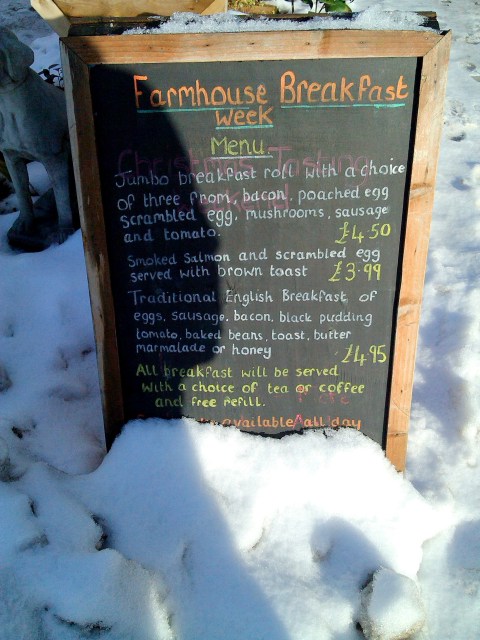 Farmhouse Breakfast
week
Menu
Christmas Tasting
Jumbo breakfast roll with a choice
of three from, bacon, poached egg
scrambled egg, mushrooms, sausage
and tomato. £4.50
Smoked Salmon and scrambled egg
served with brown toast £3.99
Traditional English Breakfast of
eggs, sausage, bacon, black pudding
tomato, baked beans, toast, butter
marmalade or honey £4.95
All breakfast will be served
with a choice of tea or coffee
and free refill.
available all day